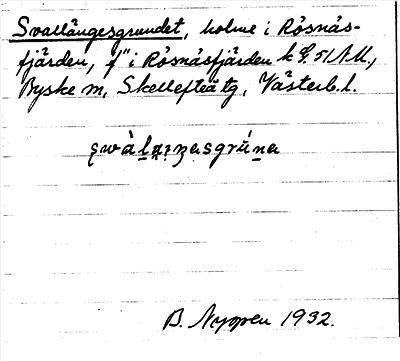 Svallängesgrundet, holme i Rösnäs-
fjärden, f" i Rösnäsfjärden k S. 51 AU,
Byske sn, Skellefteå tg, Västerb. l.
B. Nyppen 1932.